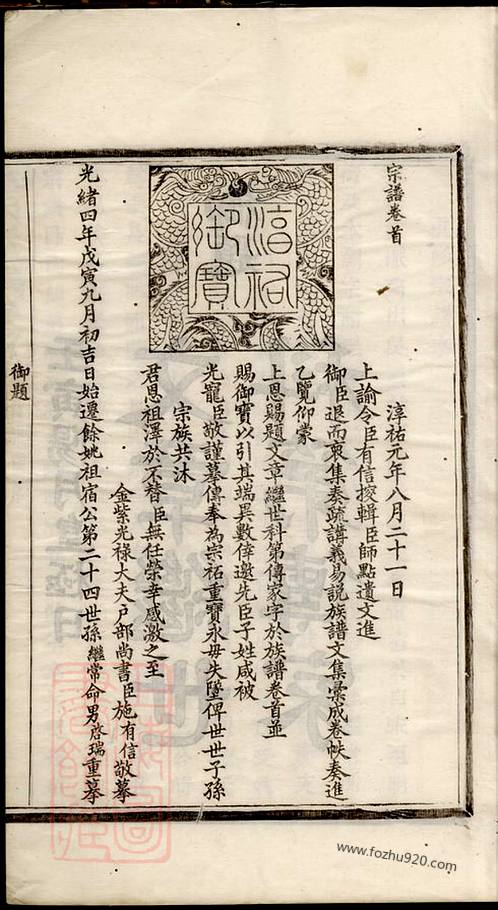 宗譜卷首
淳祐御寶
淳祐元年八月二十一日
上諭令臣有信按輯臣師點遺文進
御臣退而裒集奏疏講義易說族譜文集彙成卷帙奏進
乙覽仰蒙
上恩賜題文章繼世科第傳家字於族譜卷首並
賜御寶以引其端異數倖邀先臣子姓咸被
光寵臣敬謹摹傳奉為宗祏重寶永毋失墜俾世世子孫
宗族共沐
君恩祖澤於不替臣無任榮幸感激之至
金紫光禄大夫戶部尚書臣施有信敬摹
光緒四年戊寅九月初吉日始遷餘姚祖宿公第二十四世孫繼常命男啓瑞重摹
御題
www.fozhu920.com